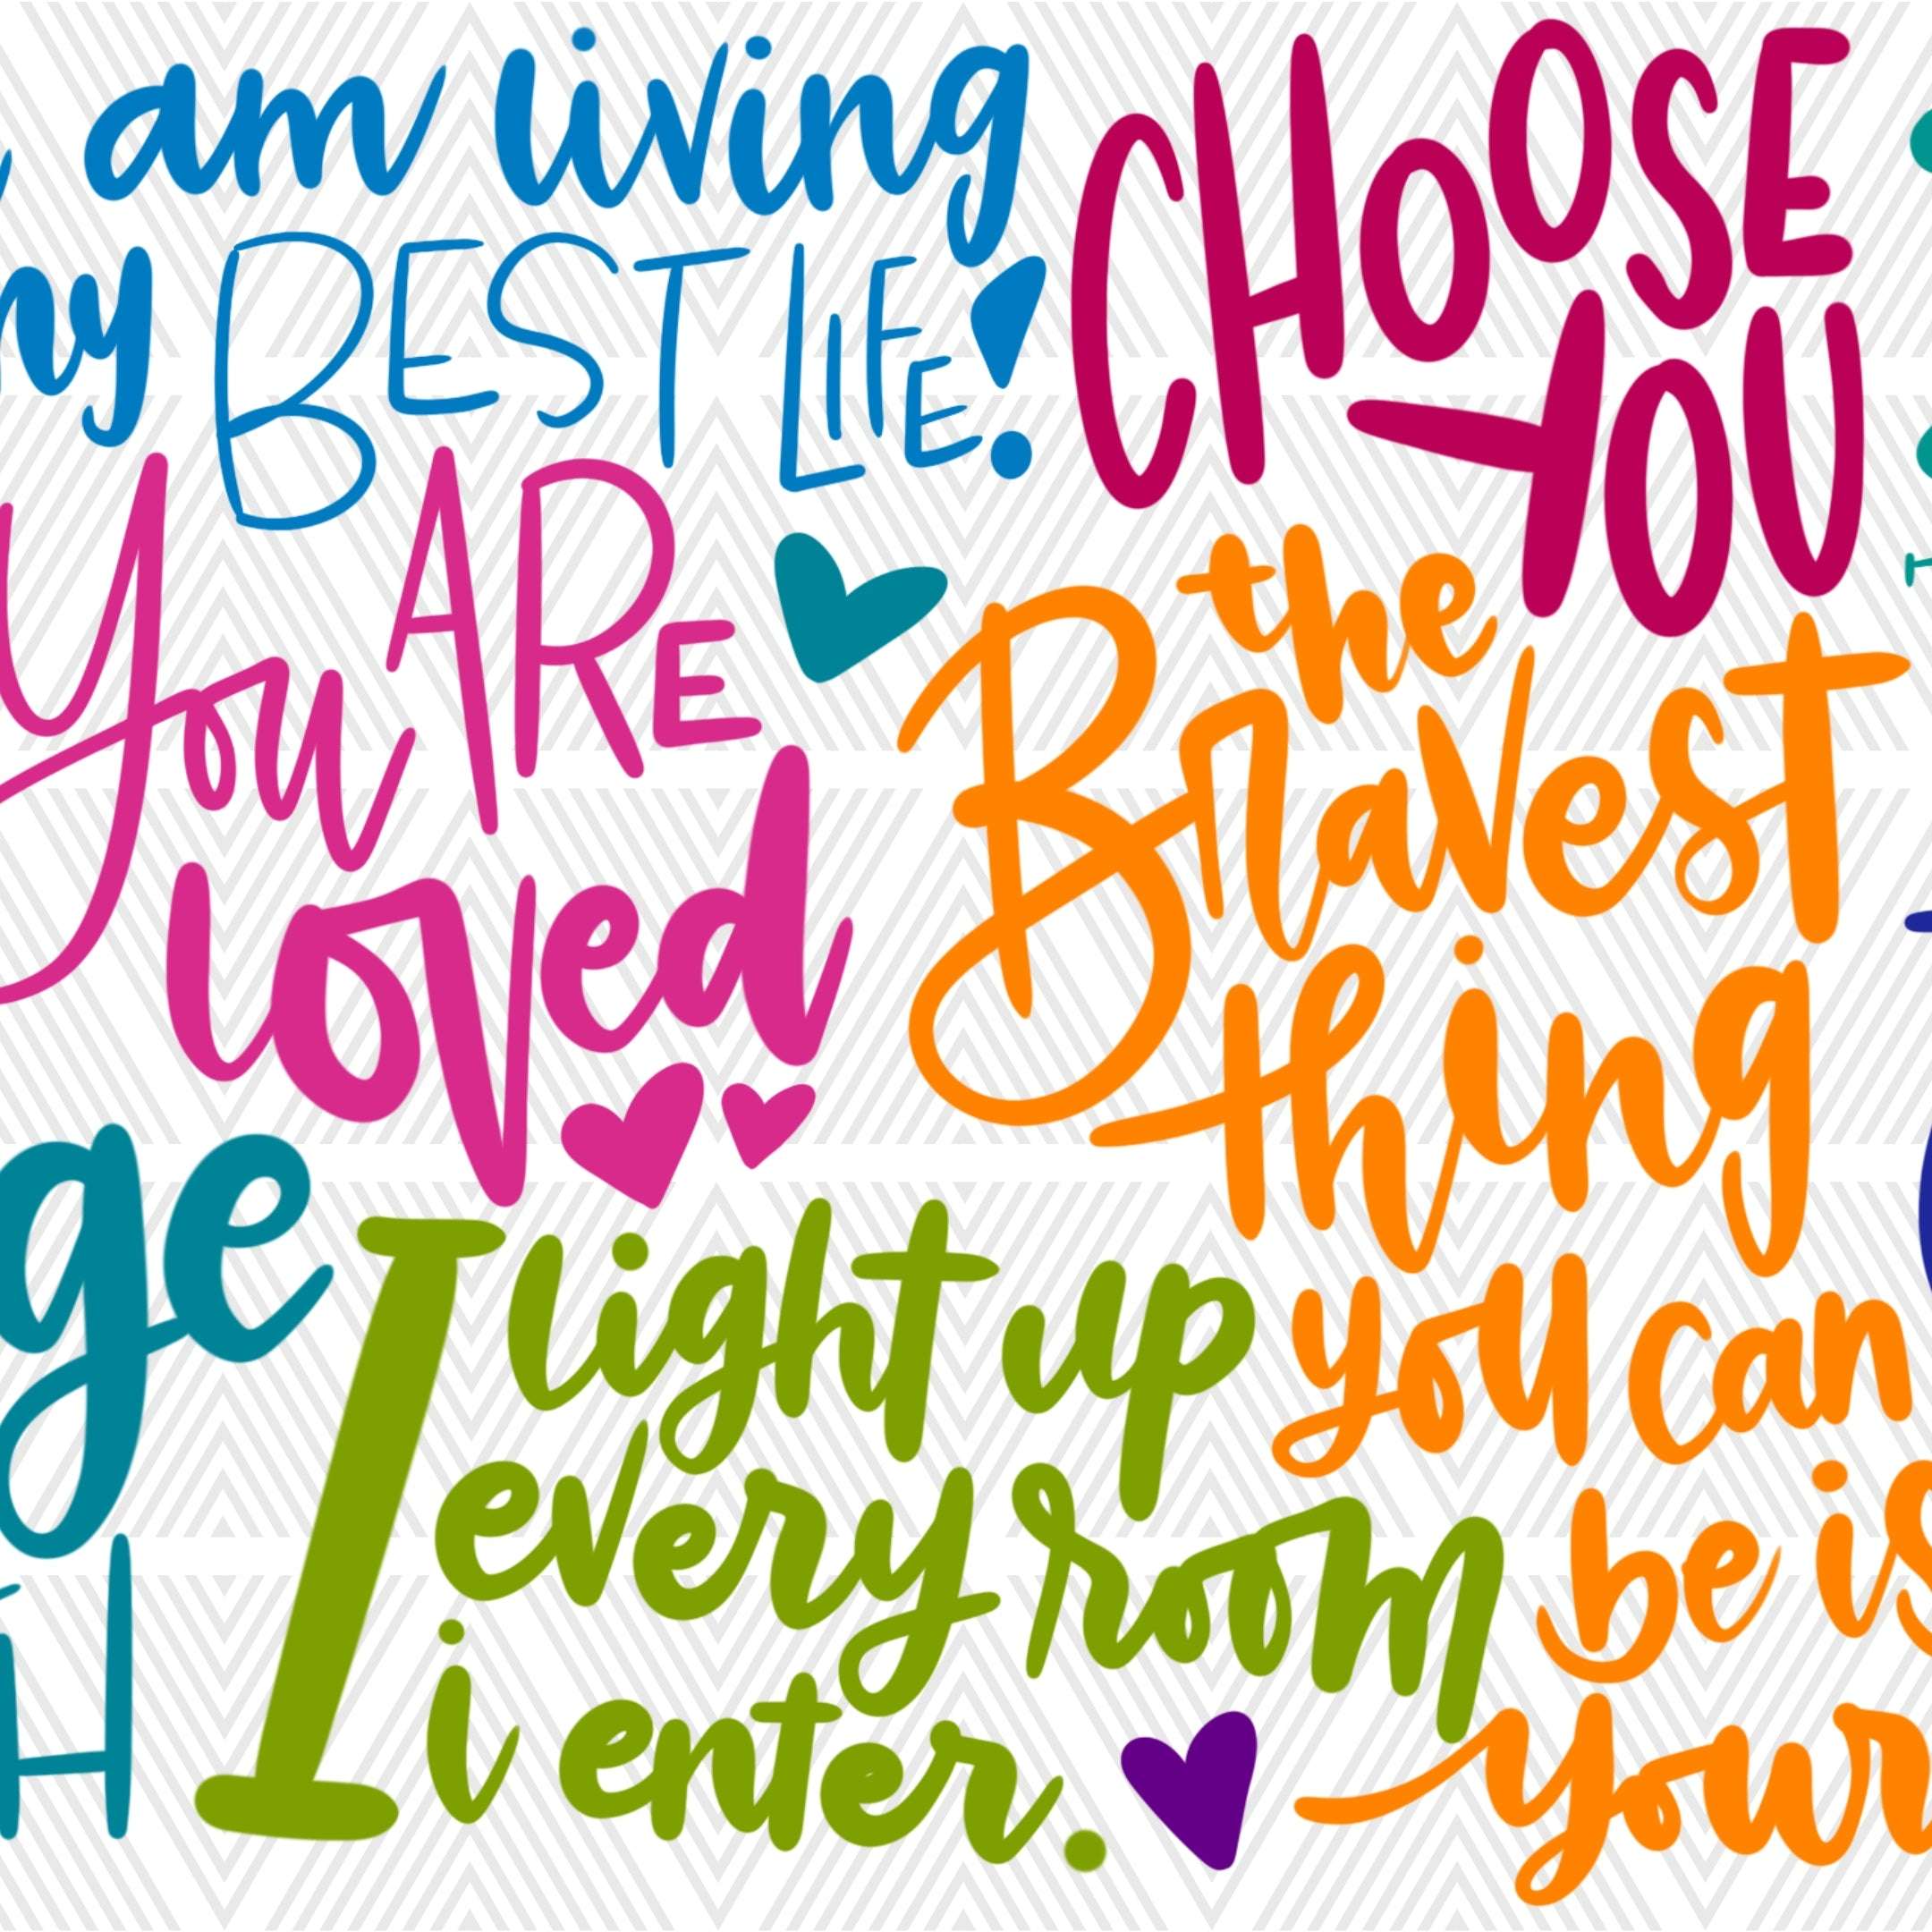 am living
my BEST LIFE!
CHOOSE
YOU
You ARE
loved
the
Bravest
thing
you can
be is
your
ge
H
I light up
every room
i enter.